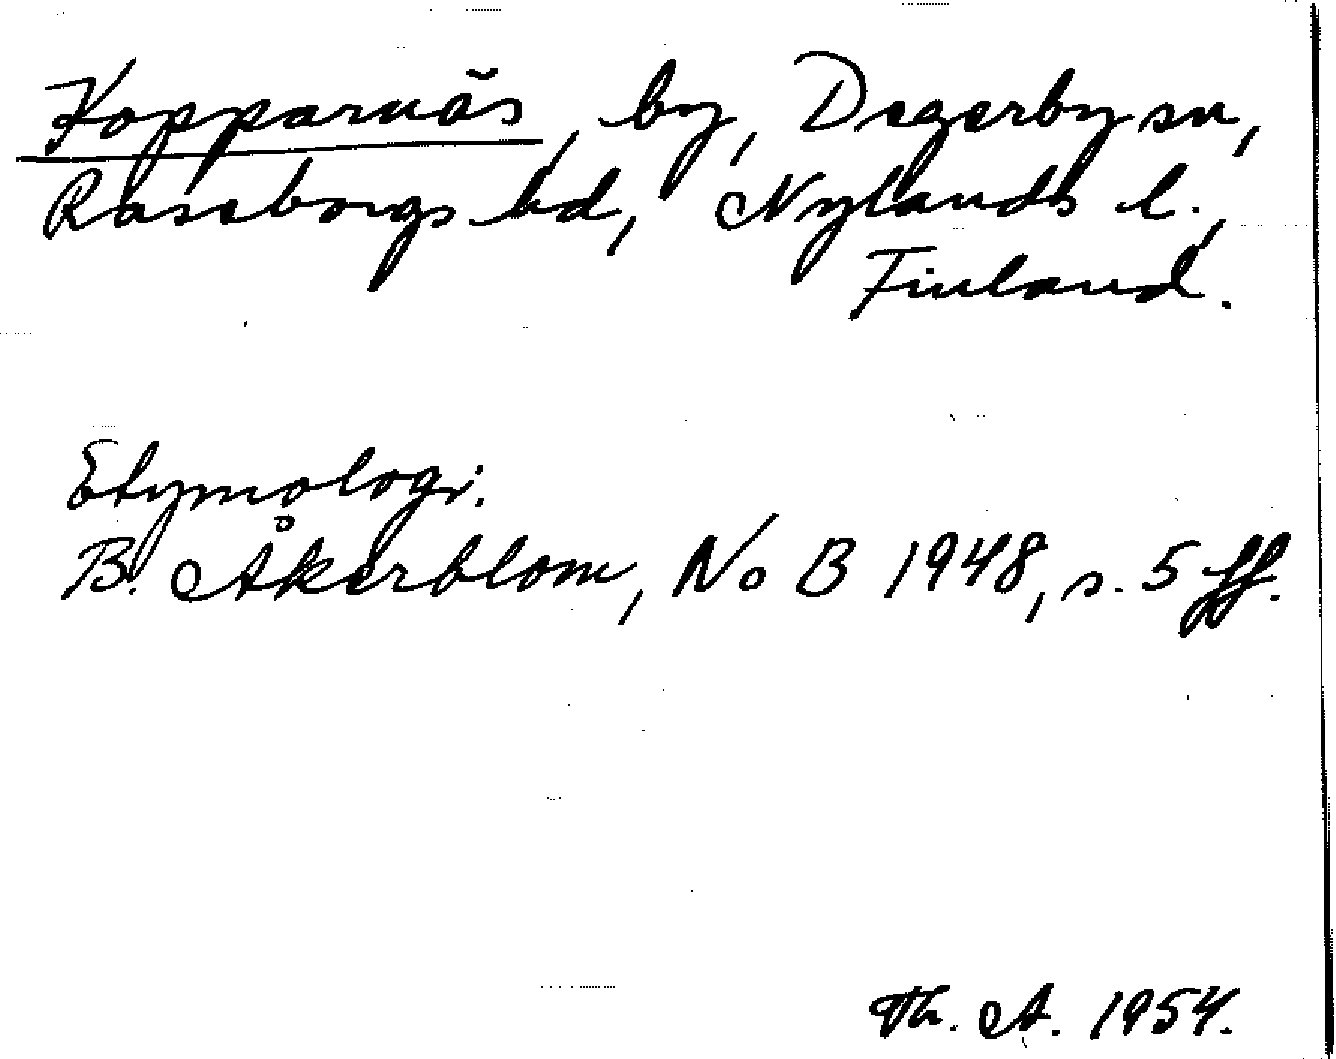 Kopparnäs, by, Degerby sn,
Raseborgs hd, Nylands l.,
Finland.
Etymologi.
B. Åkerblom, NoB 1948, s. 5 ff.
Th. A. 1954.